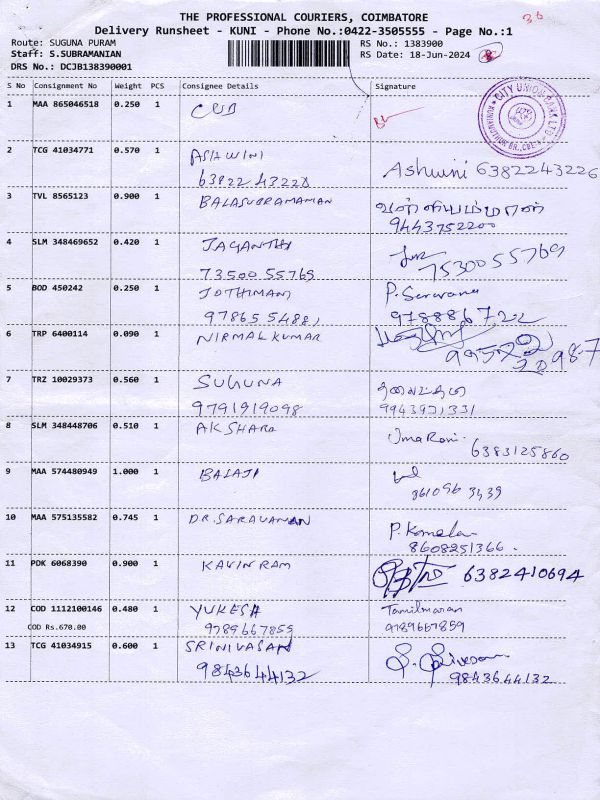 36
THE PROFESSIONAL COURIERS, COIMBATORE
Delivery Runsheet - KUNI - Phone No.:0422-3505555 - Page No.:1
Route: SUGUNA PURAM
RS No.: 1383900
Staff: S.SUBRAMANIAN
RS Date: 18-Jun-2024
DRS No.: DCJB138390001
S No Consignment No Weight PCS Consignee Details Signature
1 MAA 865046518 0.250 1 CUB
CITY UNION BANK LTD
2 TCG 41034771 0.570 1 ASHWINI Ashwini 6382243226
3 TVL 8565123 0.900 1 BALASUBRAMANIAN
9443752200
4 SLM 348469652 0.420 1 JAYANTHI
7350055769 7530055769
5 BOD 450242 0.250 1 JOTHIMANI P. Saravana
9786554881 978886722
6 TRP 6400114 0.090 1 NIRMALKUMAR
7 TRZ 10029373 0.560 1 SUGUNA
9791919098 9943931331
8 SLM 348448706 0.510 1 AKSHARA Uma Rani
6383125860
9 MAA 574480949 1.000 1 BALAJI
10 MAA 575135582 0.745 1 DR.SARAVANAN P. Kamala
8608251366.
11 PDK 6068390 0.900 1 KAVINRAM 6382410694
12 COD 1112100146 0.480 1 YUKESH Tamilmaran
COD Rs.670.00 9789667859 9789667859
13 TCG 41034915 0.600 1 SRINIVASAN
9843644132 9843644132